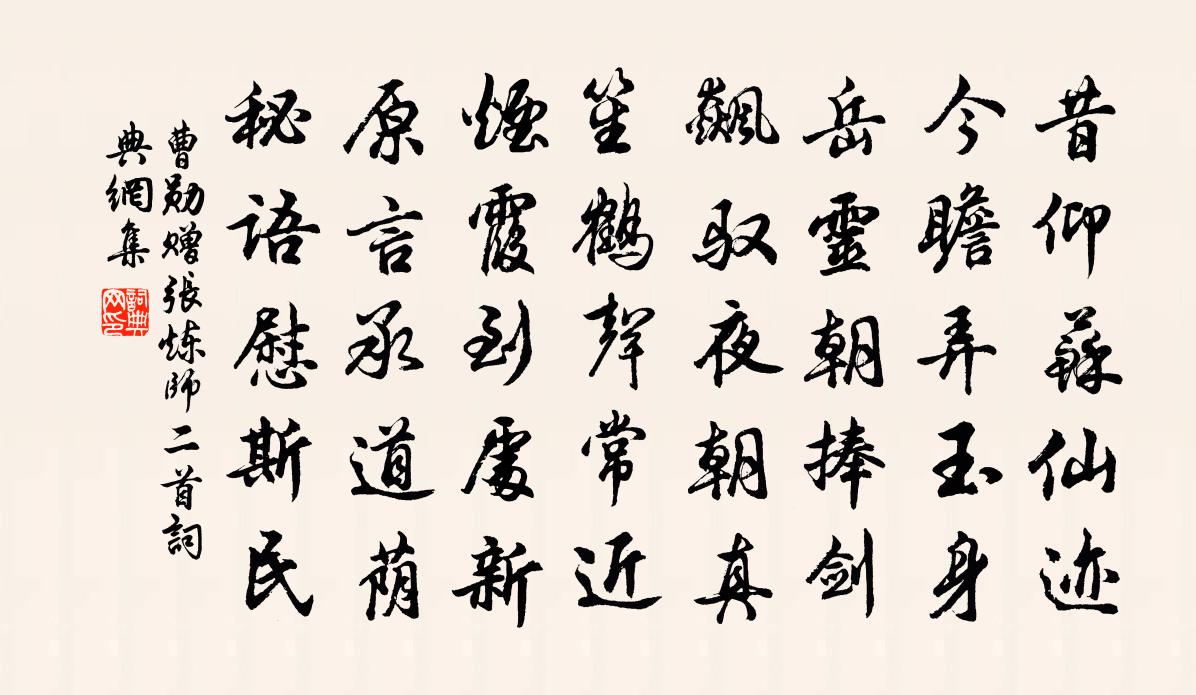 昔仰蘇仙迹
今瞻弄玉身
岳靈朝捧剑
飆驭夜朝真
笙鶴聲常近
煙霞到處新
原言承道荫
秘語慰斯民
曹勋赠張炼師二首詞
典網集
詞典网印